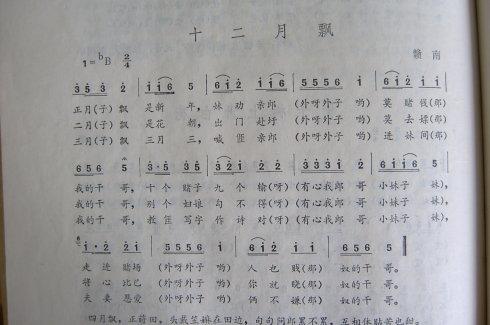 十二月飘
1=♭B 2/4
赣南
3̇5̇3̇ 2̇ | i i6 5 | 6 2̇ i i6 | 5556 i | 3̇3̇2̇ i 2̇ |
正月(子)飘 是新 年，妹劝亲郎 (外呀外子 哟) 莫赌钱(那)
二月(子)飘 是花 朝，出门赴圩 (外呀外子 哟) 莫去嫖(那)
三月(子)飘 三月 三，
656 5 | 3̇·2̇ 3̇5̇ | 2̇i 2̇ | 3̇3̇3̇i 2̇ | 6ii6 5 |
我的干 哥，十个 赌子 九个 输(呀) (有心我郎 哥 小妹子 妹)，
我的干 哥，别个 妇娘 句不 得(呀) (有心我郎 哥 小妹子 妹)，
我的干 哥，教 写字 作诗 对(呀) (有心我郎 哥 小妹子 妹)，
i·2̇ 2̇i | 5556 i | 6i 2̇i | 656 5 ‖
走进 赌场 (外呀外子 哟) 人也 贱(那) 奴的干 哥。
将心 比己 (外呀外子 哟) 你就 晓(那) 奴的干 哥。
夫妻 恩爱 (外呀外子 哟) 俩不 嫌(那) 奴的干 哥。
四月飘，正莳田，头戴笠麻在田边，句句问郎累不累，互相体贴苦也甜。